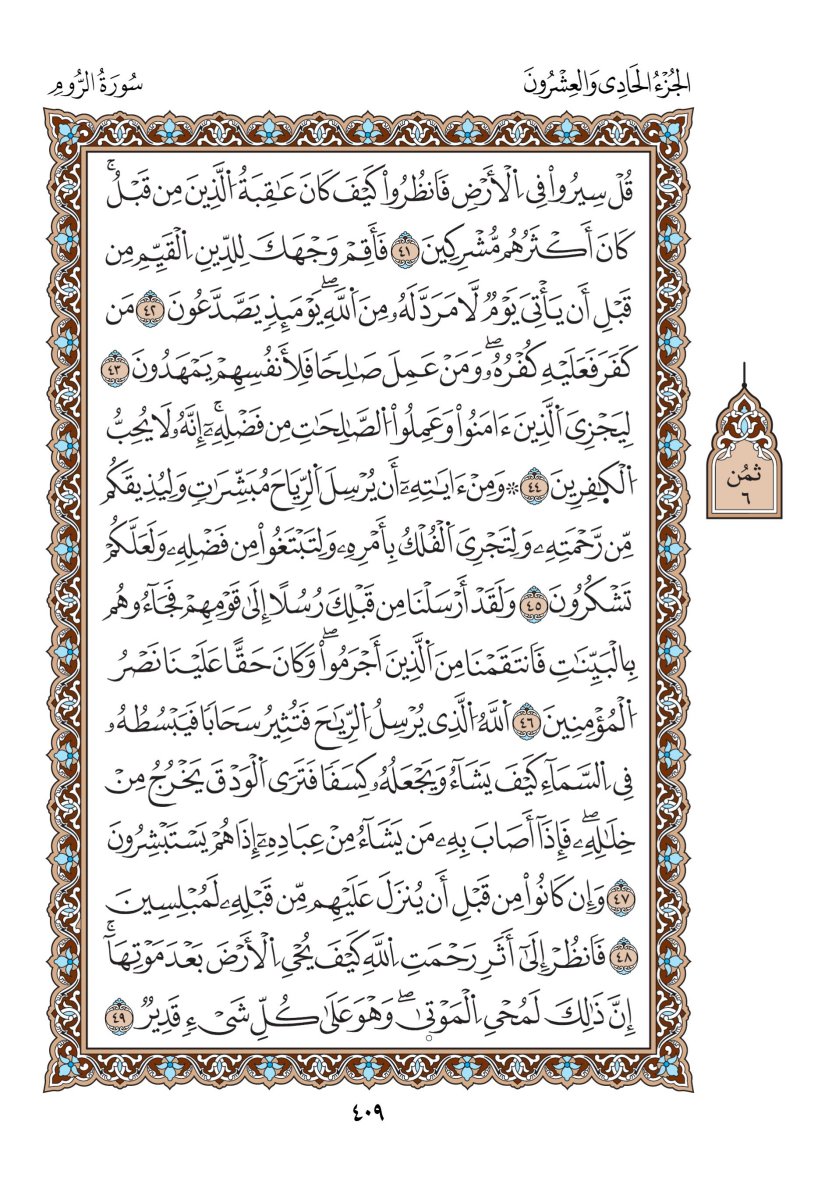 الجُزْءُ الحَادِى وَالعِشْرُونَ
سُورَةُ الرُّومِ
قُلْ سِيرُواْ فِى اِ۬لْأَرْضِ فَانظُرُواْ كَيْفَ كَانَ عَٰقِبَةُ اُ۬لَّذِينَ مِن قَبْلُۚ
كَانَ أَكْثَرُهُم مُّشْرِكِينَ ٤١ فَأَقِمْ وَجْهَكَ لِلدِّينِ اِ۬لْقَيِّمِ مِن
قَبْلِ أَن يَأْتِىَ يَوْمٌ لَّا مَرَدَّ لَهُۥ مِنَ اَ۬للَّهِۖ يَوْمَئِذٍ يَصَّدَّعُونَ ٤٢ مَن
كَفَرَ فَعَلَيْهِ كُفْرُهُۥۖ وَمَنْ عَمِلَ صَٰلِحًا فَلِأَنفُسِهِمْ يَمْهَدُونَ ٤٣
لِيَجْزِىَ اَ۬لَّذِينَ ءَامَنُواْ وَعَمِلُواْ اُ۬لصَّٰلِحَٰتِ مِن فَضْلِهِۦٓۚ إِنَّهُۥ لَا يُحِبُّ
ثُمُن
٦
اُ۬لْكٰ۪فِرِينَ ٤٤ ۞ وَمِنْ ءَايَٰتِهِۦٓ أَن يُرْسِلَ اَ۬لرِّيَاحَ مُبَشِّرَٰتٍ وَلِيُذِيقَكُم
مِّن رَّحْمَتِهِۦ وَلِتَجْرِىَ اَ۬لْفُلْكُ بِأَمْرِهِۦ وَلِتَبْتَغُواْ مِن فَضْلِهِۦ وَلَعَلَّكُمْ
تَشْكُرُونَ ٤٥ وَلَقَدْ أَرْسَلْنَا مِن قَبْلِكَ رُسُلًا إِلَىٰ قَوْمِهِمْ فَجَآءُوهُم
بِالْبَيِّنَٰتِ فَانتَقَمْنَا مِنَ اَ۬لَّذِينَ أَجْرَمُواْۖ وَكَانَ حَقًّا عَلَيْنَا نَصْرُ
اُ۬لْمُؤْمِنِينَ ٤٦ اَ۬للَّهُ اُ۬لَّذِى يُرْسِلُ اُ۬لرِّيَٰحَ فَتُثِيرُ سَحَابًا فَيَبْسُطُهُۥ
فِى اِ۬لسَّمَآءِ كَيْفَ يَشَآءُ وَيَجْعَلُهُۥ كِسَفًا فَتَرَى اَ۬لْوَدْقَ يَخْرُجُ مِنْ
خِلَٰلِهِۦۖ فَإِذَآ أَصَابَ بِهِۦ مَن يَشَآءُ مِنْ عِبَادِهِۦٓ إِذَا هُمْ يَسْتَبْشِرُونَ
٤٧ وَإِن كَانُواْ مِن قَبْلِ أَن يُنزَلَ عَلَيْهِم مِّن قَبْلِهِۦ لَمُبْلِسِينَ
٤٨ فَانظُرْ إِلَىٰٓ أَثَرِ رَحْمَتِ اِ۬للَّهِ كَيْفَ يُحْىِ اِ۬لْأَرْضَ بَعْدَ مَوْتِهَآۚ
إِنَّ ذَٰلِكَ لَمُحْىِ اِ۬لْمَوْت۪ىٰۖ وَهْوَ عَلَىٰ كُلِّ شَىْءٍ قَدِيرٌ ٤٩
٤٠٩